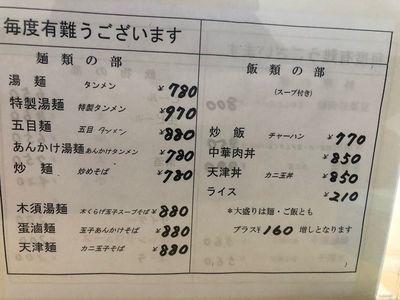 毎度有難うございます
麺類の部
湯麺 タンメン ¥780
特製湯麺 特製タンメン ¥970
五目麺 五目ラーメン ¥880
あんかけ湯麺 あんかけタンメン ¥780
炒麺 炒めそば ¥780
木須湯麺 木くらげ玉子スープそば ¥880
蛋滷麺 玉子あんかけそば ¥880
天津麺 カニ玉そば ¥880
飯類の部
(スープ付き)
炒飯 チャーハン ¥770
中華肉丼 ¥850
天津丼 カニ玉丼 ¥850
ライス ¥210
*大盛りは麺・ご飯とも
プラス¥160増しとなります